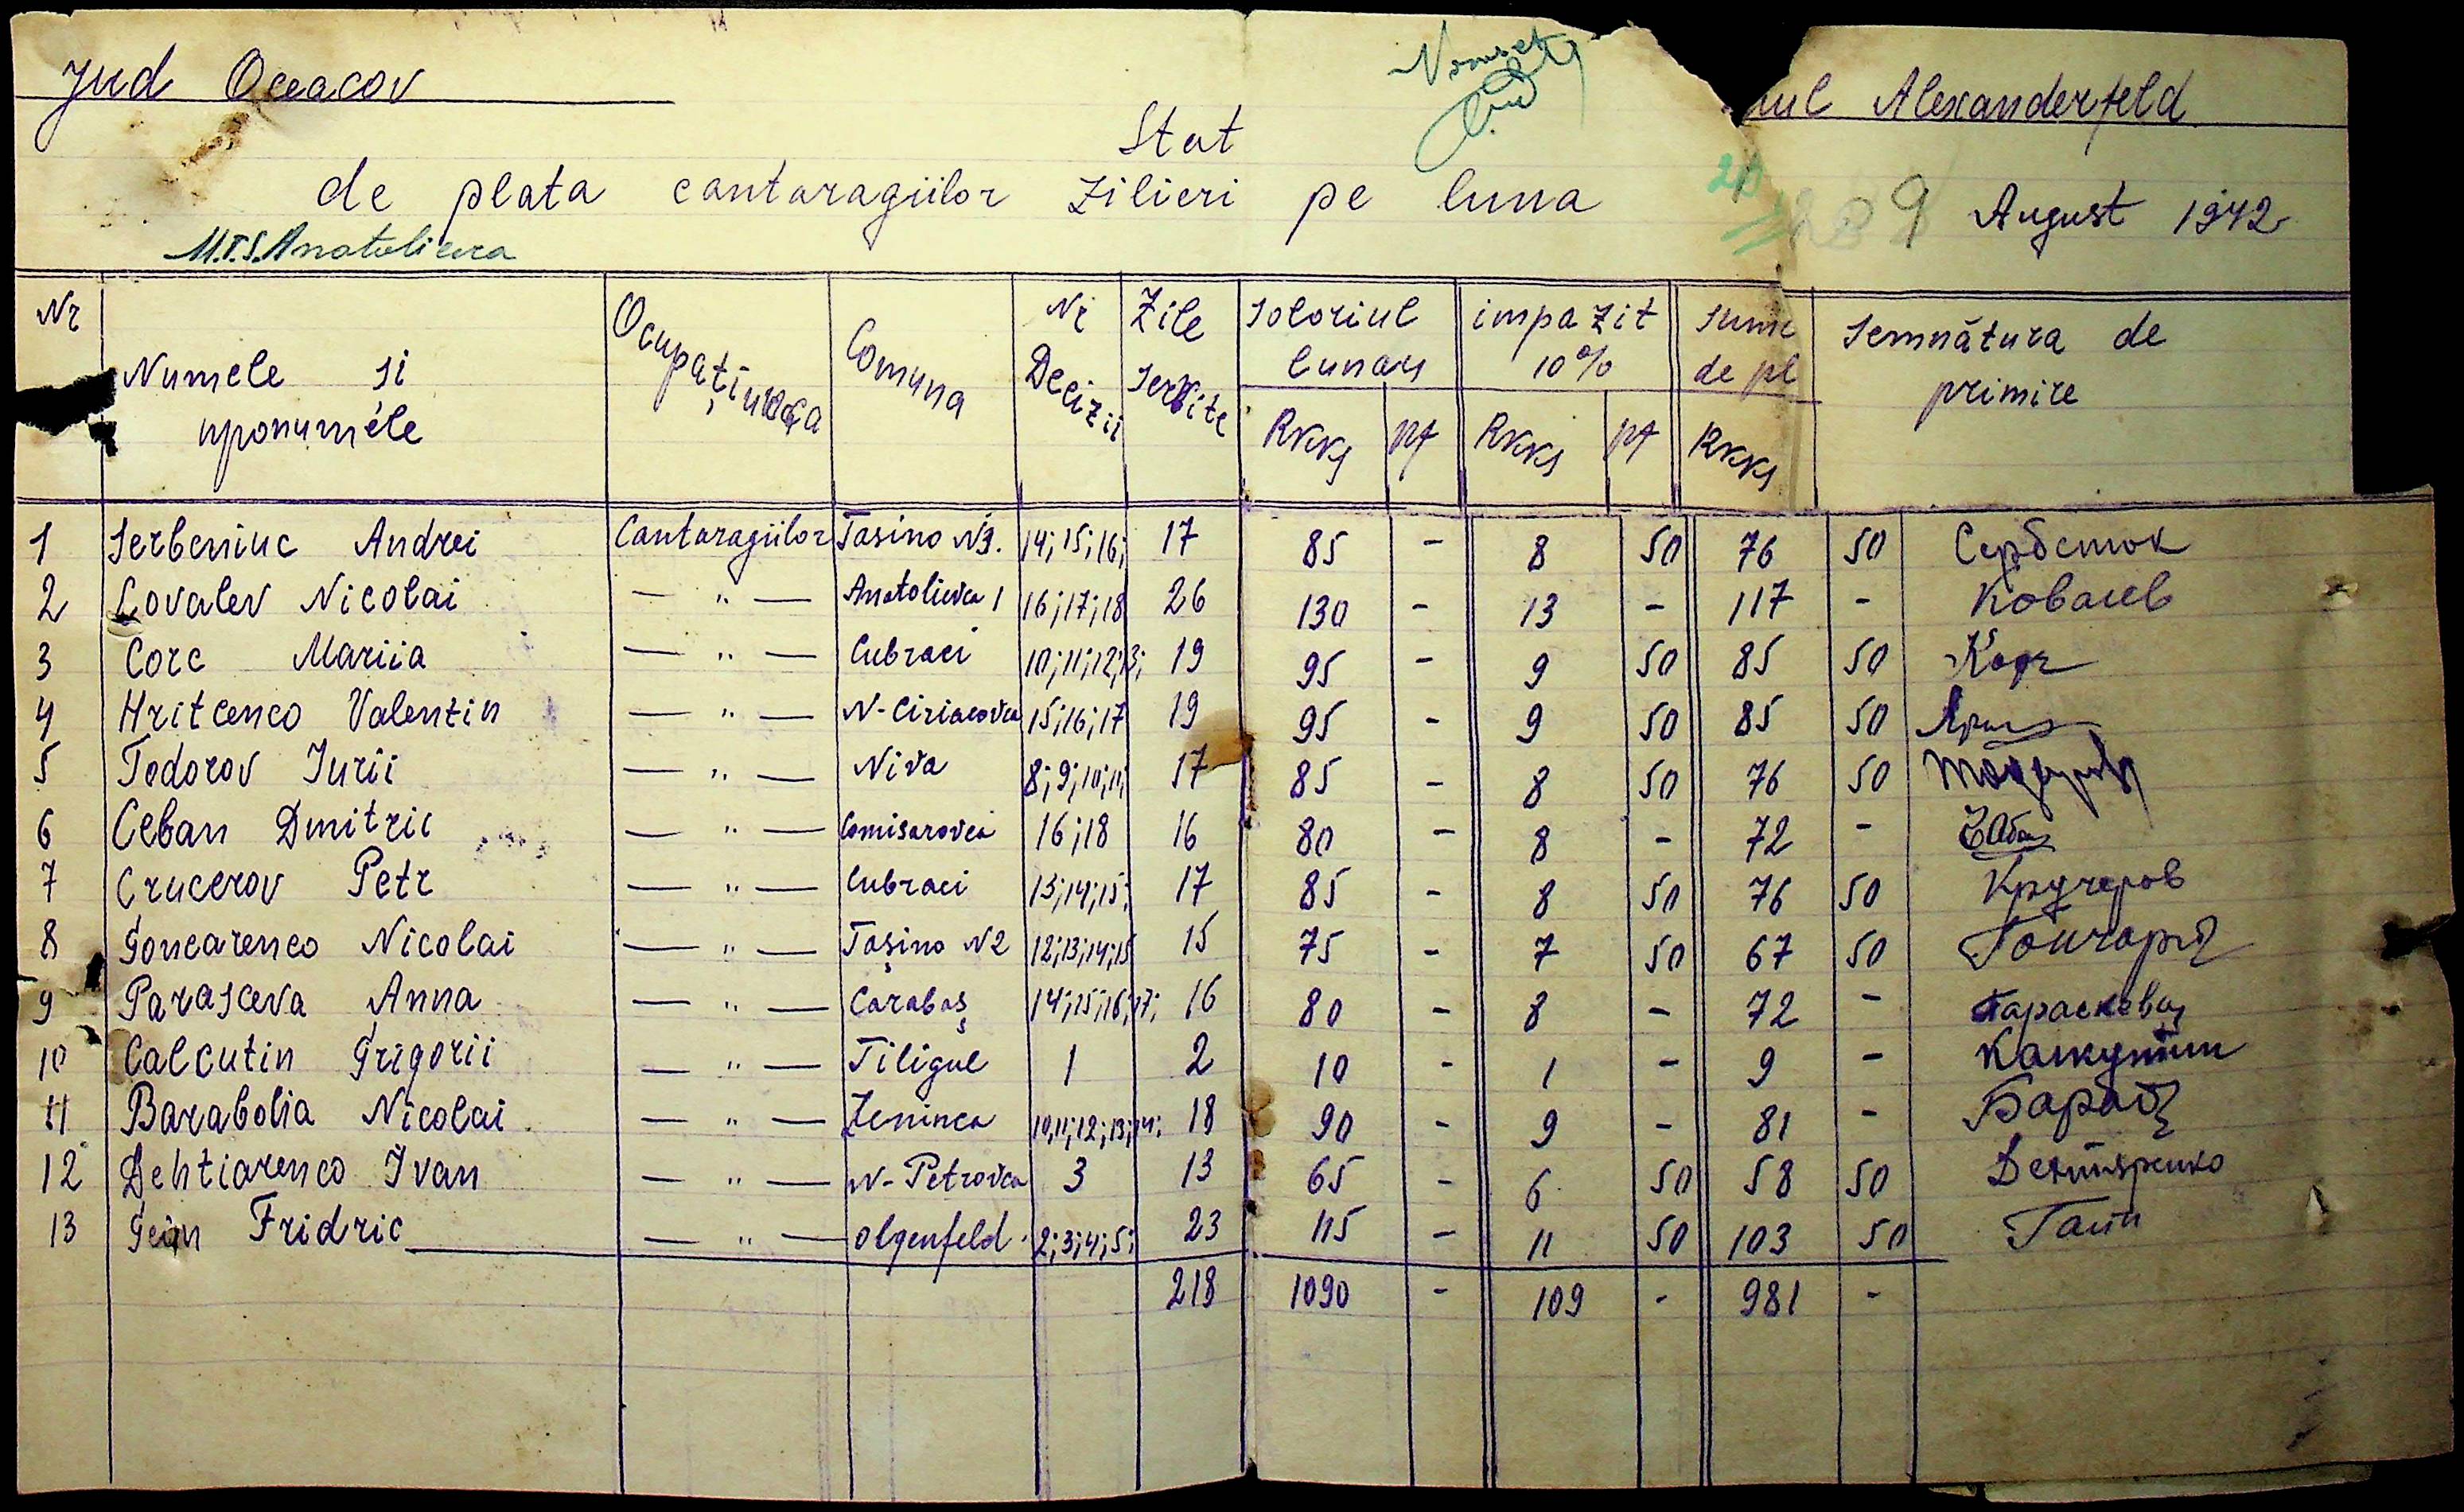 Jud Oceacov
Alexanderfeld
Stat
de plata cantaragiilor zilieri pe luna August 1942
M.T.S. Anatolievca
Nr Numele si pronumele Ocupațiunea Comuna Nr Decizii Zile serbite Soloriul lunars impozit 10% Suma de pl Semnătura de primire
Rkks pf Rkks pf Rkks
1 Serbeniuc Andrei Cantaragiilor Tasino N3. 14; 15; 16; 17 85 - 8 50 76 50 Сербенюк
2 Covalev Nicolai — " — Anatolievca 1 16; 17; 18 26 130 - 13 - 117 - Ковалев
3 Corc Mariia — " — Cubraci 10; 11; 12; 13; 19 95 - 9 50 85 50 Корч
4 Hritcenco Valentin — " — N-Ciriacovca 15; 16; 17 19 95 - 9 50 85 50
5 Todorov Iurii — " — Niva 8; 9; 10; 11; 17 85 - 8 50 76 50
6 Ceban Dmitric — " — Comisarovca 16; 18 16 80 - 8 - 72 -
7 Crucerov Petr — " — Cubraci 13; 14; 15; 17 85 - 8 50 76 50 Кручеров
8 Goncarenco Nicolai — " — Tașino N2 12; 13; 14; 15 15 75 - 7 50 67 50
9 Parasceva Anna — " — Carabaș 14; 15; 16; 17; 16 80 - 8 - 72 - Параскева
10 Calcutin Grigorii — " — Tiligul 1 2 10 - 1 - 9 - Калкутин
11 Barabolia Nicolai — " — Zeninca 10; 11; 12; 13; 14; 18 90 - 9 - 81 - Бараб
12 Dehtiarenco Ivan — " — N-Petrovca 3 13 65 - 6 50 58 50 Дехтяренко
13 Gein Fridric — " — Olgenfeld 2; 3; 4; 5; 23 115 - 11 50 103 50 Гаин
218 1090 - 109 - 981 -